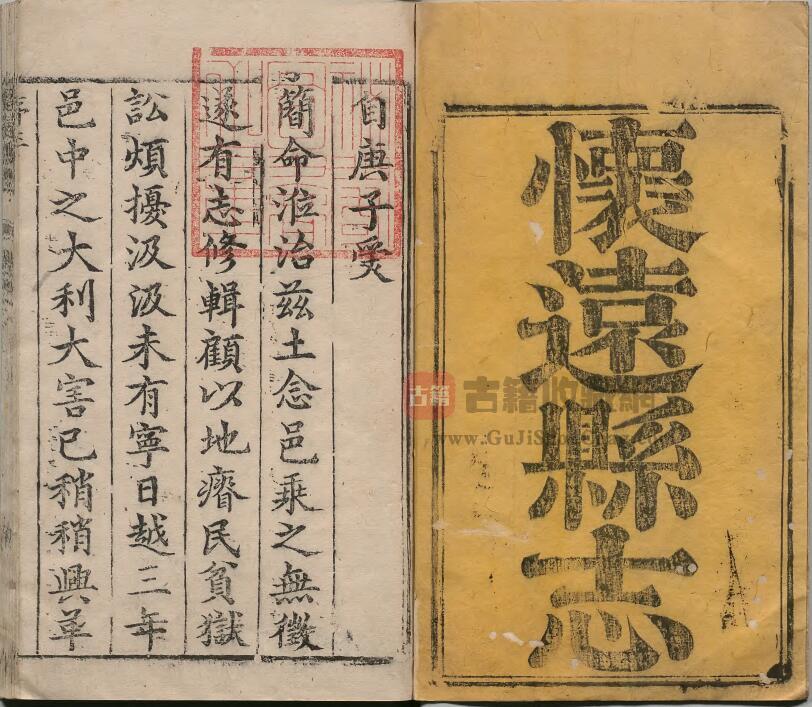 懷遠縣志
自庚子受
簡命涖治茲土念邑乗之無徵
遂有志修輯顧以地瘠民貧獄
訟煩擾汲汲未有寧日越三年
邑中之大利大害已稍稍興革
古籍
www.GuJiSho